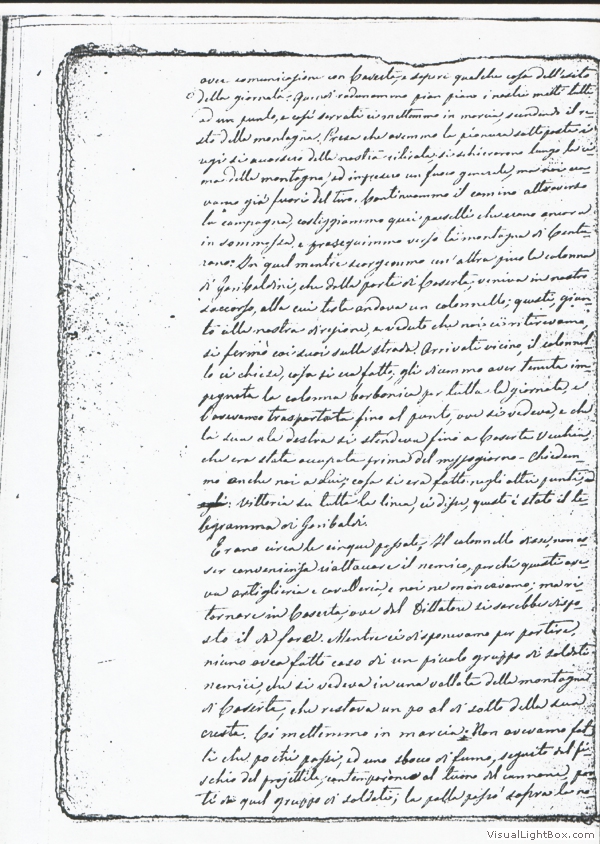 aver comunicazione con Caserta, e saperi qualche cosa dell'esito
della giornata. Quindi radunammo pian piano i nostri militi tutti
ad un punto, e così serrati ci mettemmo in marcia, scendendo il re-
sto della montagna. Presa che avemmo la pianura sottoposta i
regi si avvidero della nostra ritirata, si schierarono lungo la ci-
ma della montagna, ed impresero un fuoco generale, ma noi era-
vamo già fuori del tiro. Continuammo il camino attraverso
la campagna, costeggiammo quei paeselli che erano ancora
in sommossa, e proseguimmo verso la montagna di Cent-
rano. In quel mentre scorgemmo un'altra piccola colonna
di Garibaldini, che dalla parte di Caserta, veniva in nostro
soccorso, alla cui testa andava un colonnello; questi, giun-
to alla nostra direzione, e veduto che noi ci ritiravamo,
si fermò coi suoi sulla strada. Arrivati vicino il colonnel-
lo ci chiese, cosa si era fatto, gli dicemmo aver tenuta im-
pegnata la colonna borbonica per tutta la giornata, e
l'avevamo trasportata fino al punto, ove si vedeva, e che
la sua ala destra si stendeva fino a Caserta Vecchia,
che era stata occupata prima del mezzogiorno. Chiedem-
mo anche noi a Lui; cosa si era fatto negli altri punti, ed
egli: Vittoria su tutta la linea, ci disse, questo è stato il te-
legramma di Garibaldi.
Erano circa le cinque passate; Il colonnello disse, non es-
ser convenienza riattaccare il nemico, perché questi ave-
va artiglieria e cavalleria, e noi ne mancavamo; ma ri-
tornare in Caserta, ove dal Dittatore si sarebbe dispo-
sto il da farsi. Mentre ci disponevamo per partire,
niuno avea fatto caso di un piccolo gruppo di soldati
nemici, che si vedeva in una vallata della montagna
di Caserta, che restava un po al di sotto della sua
cresta. Ci mettemmo in marcia: Non avevamo fat-
ti che pochi passi, ed uno sbocco di fumo, seguito dal fi-
schio del projettile, contemporaneo al tuono del cannone, par-
tì da quel gruppo di soldati; la palla passò sopra la no-
VisualLightBox.com